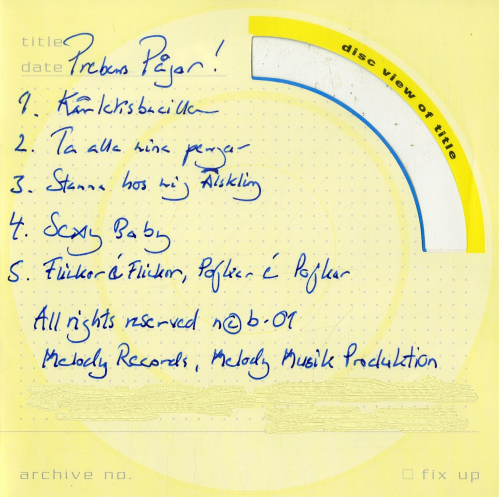 title Prebens Påjar!
date
disc view of title
1. Kärleksbacillen
2. Ta alla mina pengar
3. Stanna hos mig Älskling
4. Sexy Baby
5. Flickor é Flickor, Pojkar é Pojkar
All rights reserved n©b-01
Melody Records, Melody Musik Produktion
archive no. □ fix up